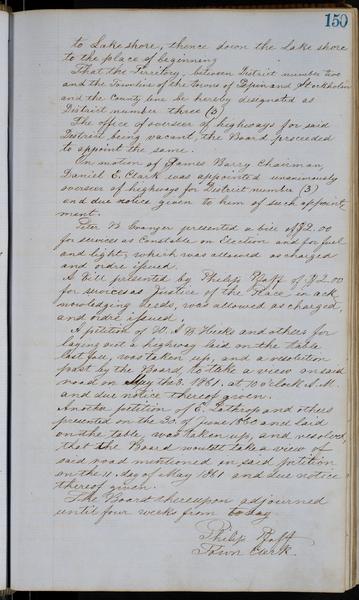 150
to Lake shore, thence down the Lake shore
to the place of beginning
That the Territory, between District number two
and the Townline of the towns of Pepin and Stockholm
and the County line be hereby designated as
District number three (3)
The office of overseer of highways for said
District being vacant, the Board proceeded
to appoint the same.
On motion of James Barry Chairman,
Daniel C. Clark was appointed unanimously
overseer of highways for District number (3)
and due notice given to him of such appoint-
ment.
Peter B presented a bill of $2.00
for services as Constable on Election and for fuel
and light, which was allowed as charged
and order issued.
A Bill presented by Philip Pfaff of $2.00
for services as Justice of the Peace in ack
nowledging deeds, was allowed as charged,
and order issued.
A petition of W. A. B. Hicks and others for
laying out a highway laid on the table
last fall, was taken up, and a resolution
past by the Board to take a view on said
road on May the 3. 1861. at 10 o'clock A.M.
and due notice thereof given.
Another petition of E. Lathrop and others
presented on the 30. of June 1860 and laid
on the table was taken up, and resolved,
that the Board would take a view of
said road mentioned in said petition
on the 11. day of May 1861 and due notice
thereof given.
The Board thereupon adjourned
until four weeks from to day.
Philip Pfaff
Town Clerk.